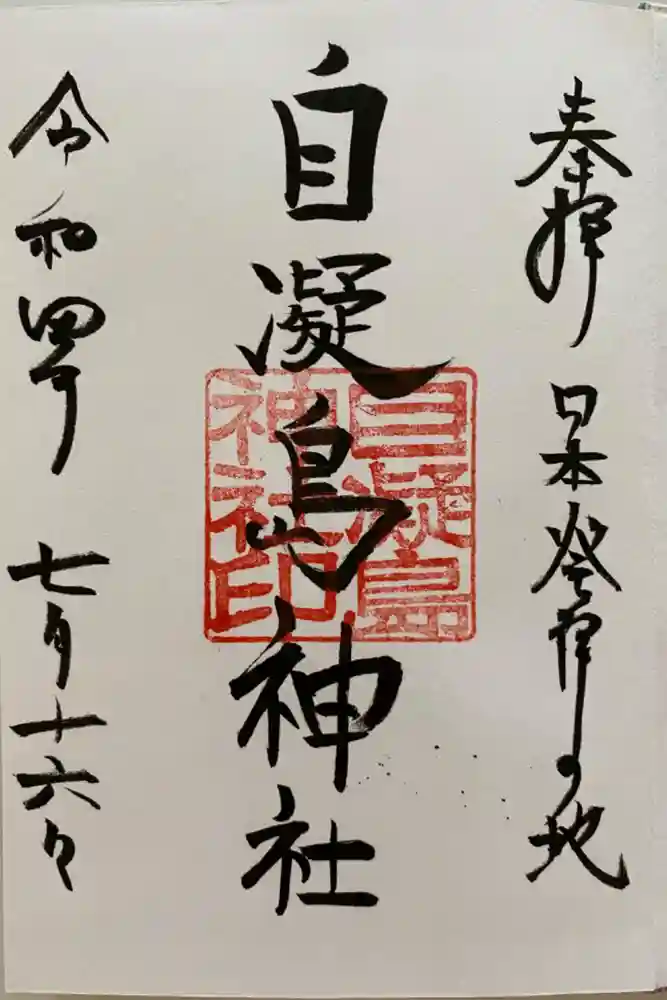 奉拝 日本発祥の地
自凝島神社
自凝島
神社印
令和四年七月十六日